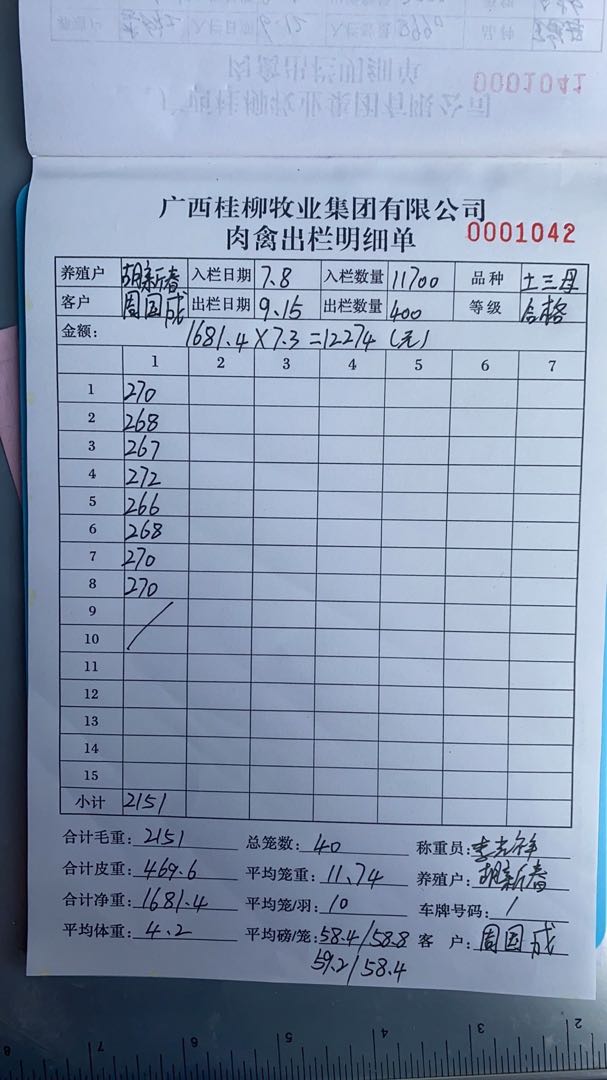 0001041
广西桂柳牧业集团有限公司
肉禽出栏明细单
0001042
养殖户 胡新春 入栏日期 7.8 入栏数量 11700 品种 土三母
客户 周国成 出栏日期 9.15 出栏数量 400 等级 合格
金额： 1681.4×7.3=12274（元）
1 2 3 4 5 6 7
1 270
2 268
3 267
4 272
5 266
6 268
7 270
8 270
9
10
11
12
13
14
15
小计 2151
合计毛重：2151 总笼数：40 称重员：
合计皮重：469.6 平均笼重：11.74 养殖户：胡新春
合计净重：1681.4 平均笼/羽：10 车牌号码：/
平均体重：4.2 平均磅/笼：58.4/58.8 客 户：周国成
59.2/58.4
8 7 6 5 4 3 2